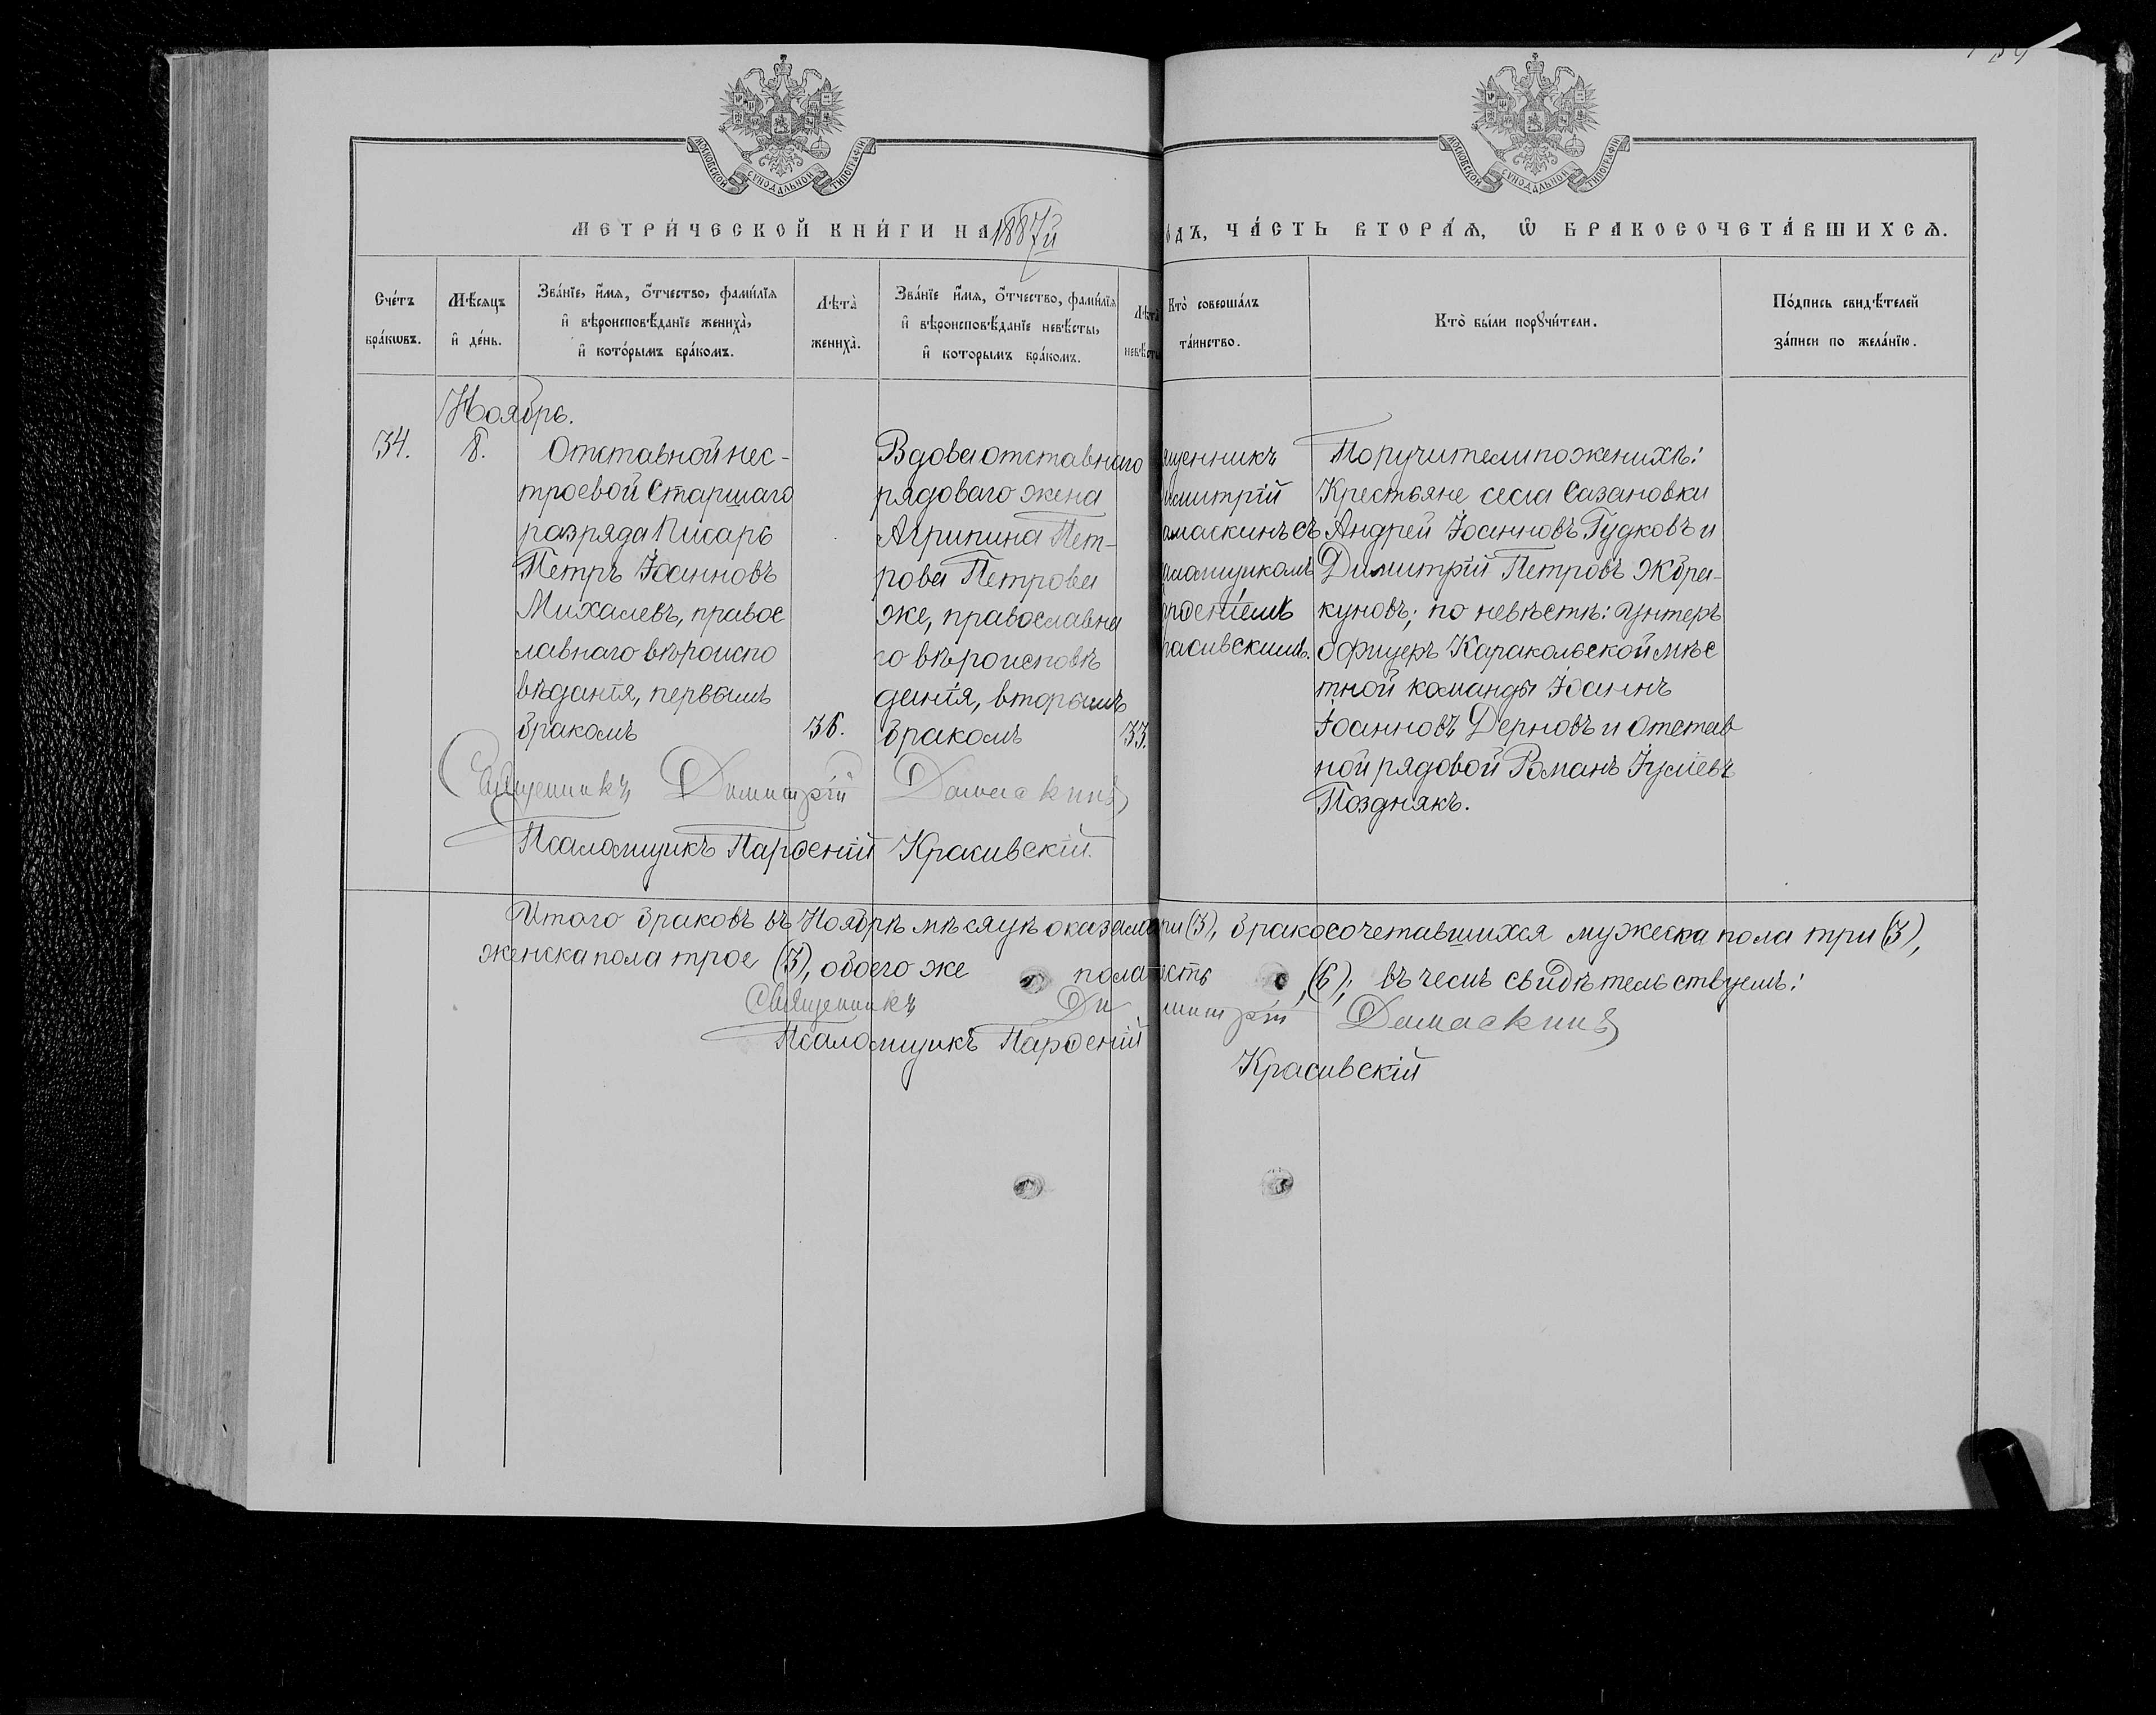 МОСКОВСКОЙ СѴНОДАЛЬНОЙ ТИПОГРАФІИ
МОСКОВСКОЙ СѴНОДАЛЬНОЙ ТИПОГРАФІИ
МЕТРИ́ЧЕСКОЙ КНИ́ГИ НА 1887й
ОДЪ, ЧА́СТЬ ВТОРА́Ѧ, Ѿ БРАКОСОЧЕТА́ВШИХСѦ.
Сче́тъ
бра́кѡвъ.
Мѣ́сяцъ
и҆ де́нь.
Зва́нїе, и҆́мя, ѻ҆́тчество, фами́лїя
и҆ вѣроисповѣ́данїе жениха̀,
и҆ кото́рымъ бра́комъ.
Лѣта̀
жениха̀.
Зва́нїе и҆́мя, ѻ҆́тчество, фами́лїя
и҆ вѣроисповѣ́данїе невѣ́сты,
и҆ которымъ бра́комъ.
Лѣта̀
невѣ́сты
Кто̀ соверша́лъ
та́инство.
Кто̀ бы́ли порꙋчи́тели.
По́дпись свидѣ́телей
за́писи по жела́нїю.
Ноябрь.
34.
8.
Отставной нес-
троевой Старшаго
разряда Писарь
Петръ Іоанновъ
Михалевъ, правос
лавнаго вѣроиспо
вѣданія, первымъ
бракомъ
36.
Вдова отставнаго
рядоваго жена
Агрипина Пет-
рова Петрова
же, православна
го вѣроисповѣ
данія, вторымъ
бракомъ
33.
ященникъ
имитрій
амаскинъ съ
аломщикомъ
рѳеніемъ
расивскимъ.
Поручители по женихѣ:
Крестьяне села Сазановки
Андрей Іоанновъ Гудковъ и
Димитрій Петровъ Жбра-
куновъ; по невѣстѣ: Унтеръ
офицеръ Каракольской мѣс
тной команды Іоаннъ
Іоанновъ Дерновъ и Отстав
ной рядовой Романъ Іуліевъ
Позднякъ.
Священникъ Димитрій Дамаскинъ
Псаломщикъ Парѳеній Красивскій.
Итого браковъ въ Ноябрѣ мѣсяцѣ оказалось три (3), бракосочетавшихся мужеска пола три (3),
женска пола трое (3), обоего же пола шесть (6); въ чемъ свидѣтельствуемъ:
Священникъ Димитрій Дамаскинъ
Псаломщикъ Парѳеній
Красивскій